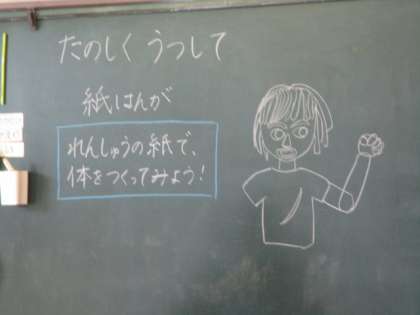 たのしく うつして
紙はんが
れんしゅうの紙で、
体をつくってみよう!